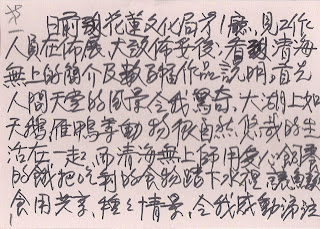 第一
日前到花蓮文化局第1廳,見工作
人員在佈展,大致佈妥後,看到清海
無上的簡介及數百幅作品說明,首先
人間天堂的風景令我驚奇,大湖上如
天鵝雁鴨等動物很自然悠哉的生
活在一起,而清海無上師用愛心飼養
的鵝把吃剩的食物踏下水裡讓魚
食用共享,種種情景,令我感動涕泣